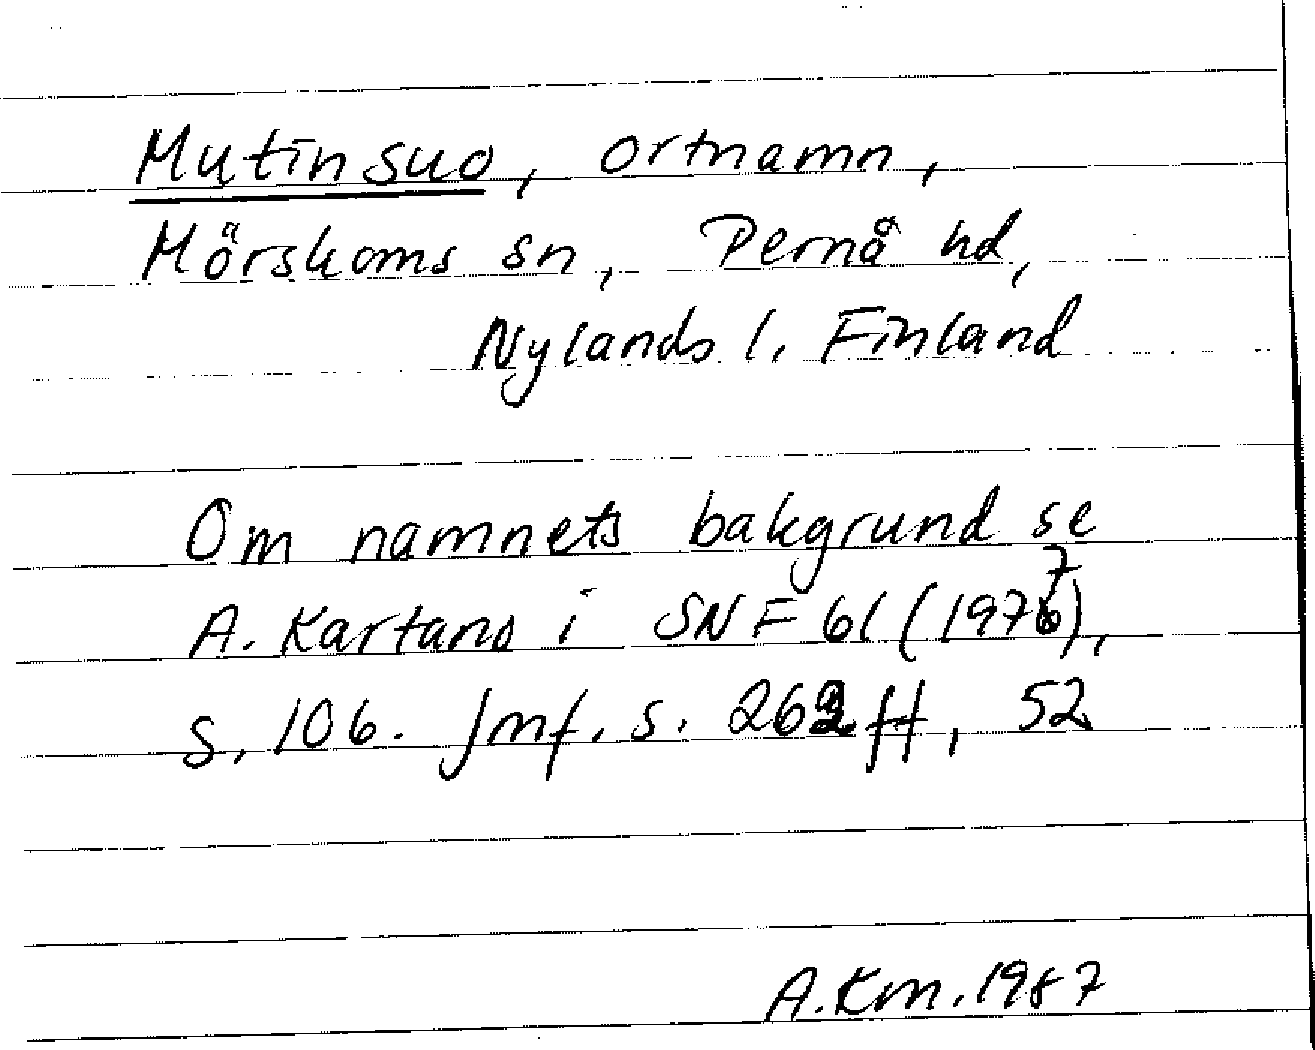 Mutinsuo, ortnamn,
Mörskoms sn, Pernå hd,
Nylands l. Finland
Om namnets bakgrund se
A. Kartano i SNF 61 (1977),
s. 106. Jmf. s. 262 ff, 52
A.Km. 1987